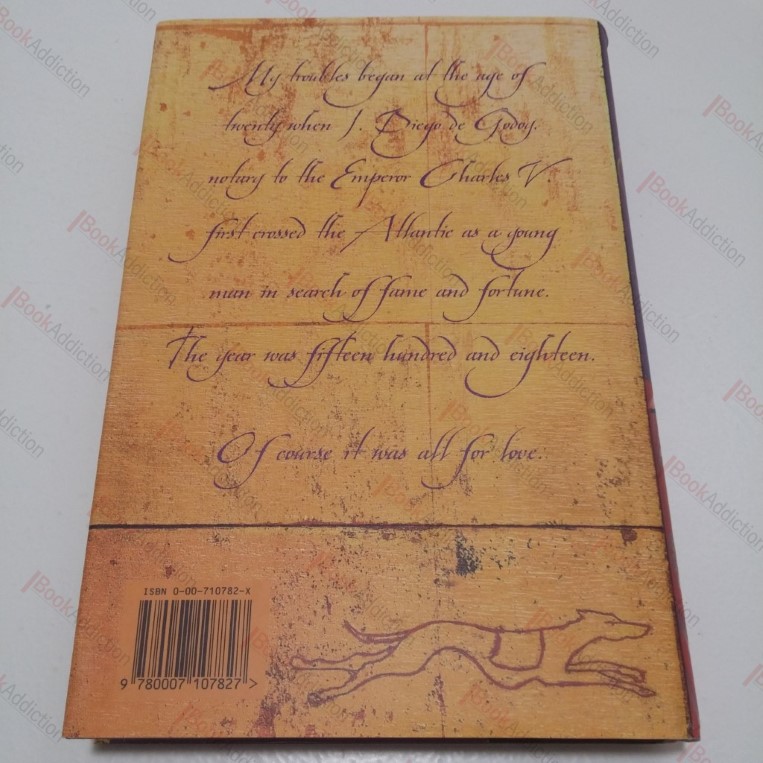 My troubles began at the age of
twenty when I, Diego de Godoy,
notary to the Emperor Charles V.
first crossed the Atlantic as a young
man in search of fame and fortune.
The year was fifteen hundred and eighteen.
Of course it was all for love.
ISBN 0-00-710782-X
9 780007 107827 >
BookAddiction